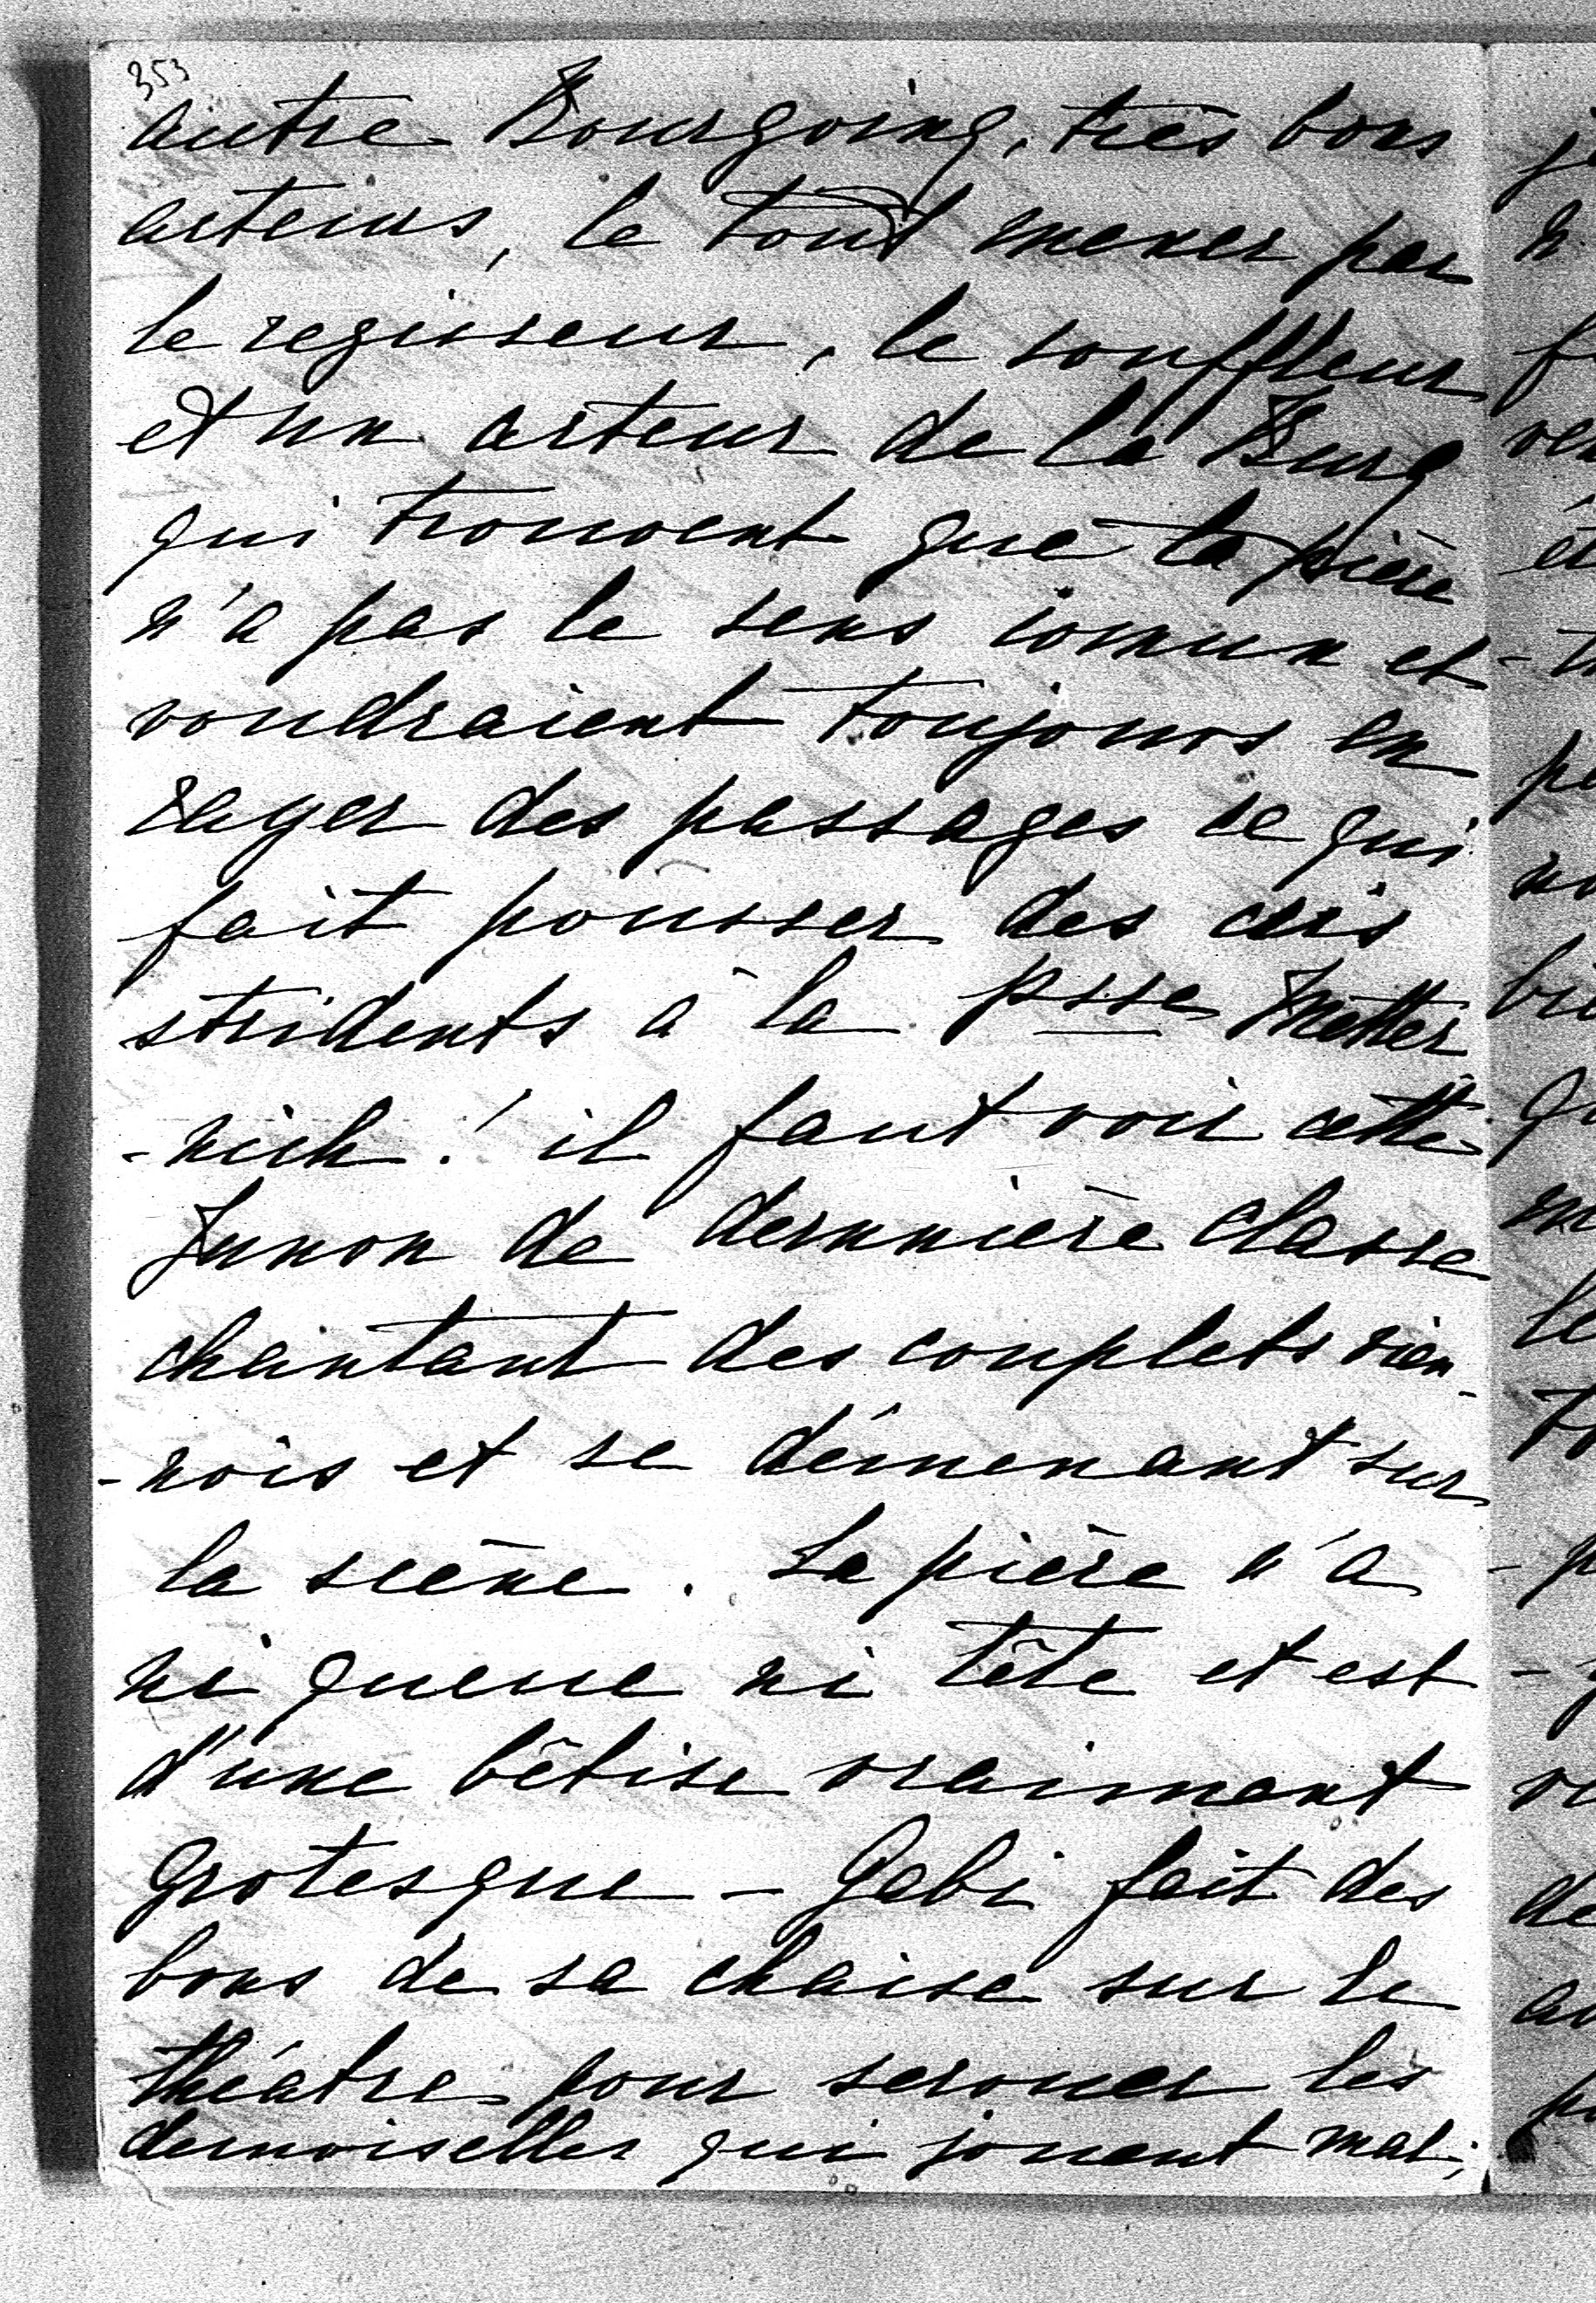 353
autre Bourgoing, très bons
acteurs, le tout mener par
le regisseur, le souffleur
et un acteur de la Burg
qui trouvent que la pièce
n'a pas le sens comun et
voudraient toujours en
rayer des passages ce qui
fait pousser des cris
stridents à la Psse Metter
-nich! il faut voir cette
Junon de dernnière classe
chantant des couplets vien-
-nois et se démenant sur
la scène. La pièce n'a
ni queue ni tête et est
d'une bêtise vraiment
grotesque - Gabi fait des
bons de sa chaise sur le
théatre pour secouer les
demoiselles qui jouent mal;